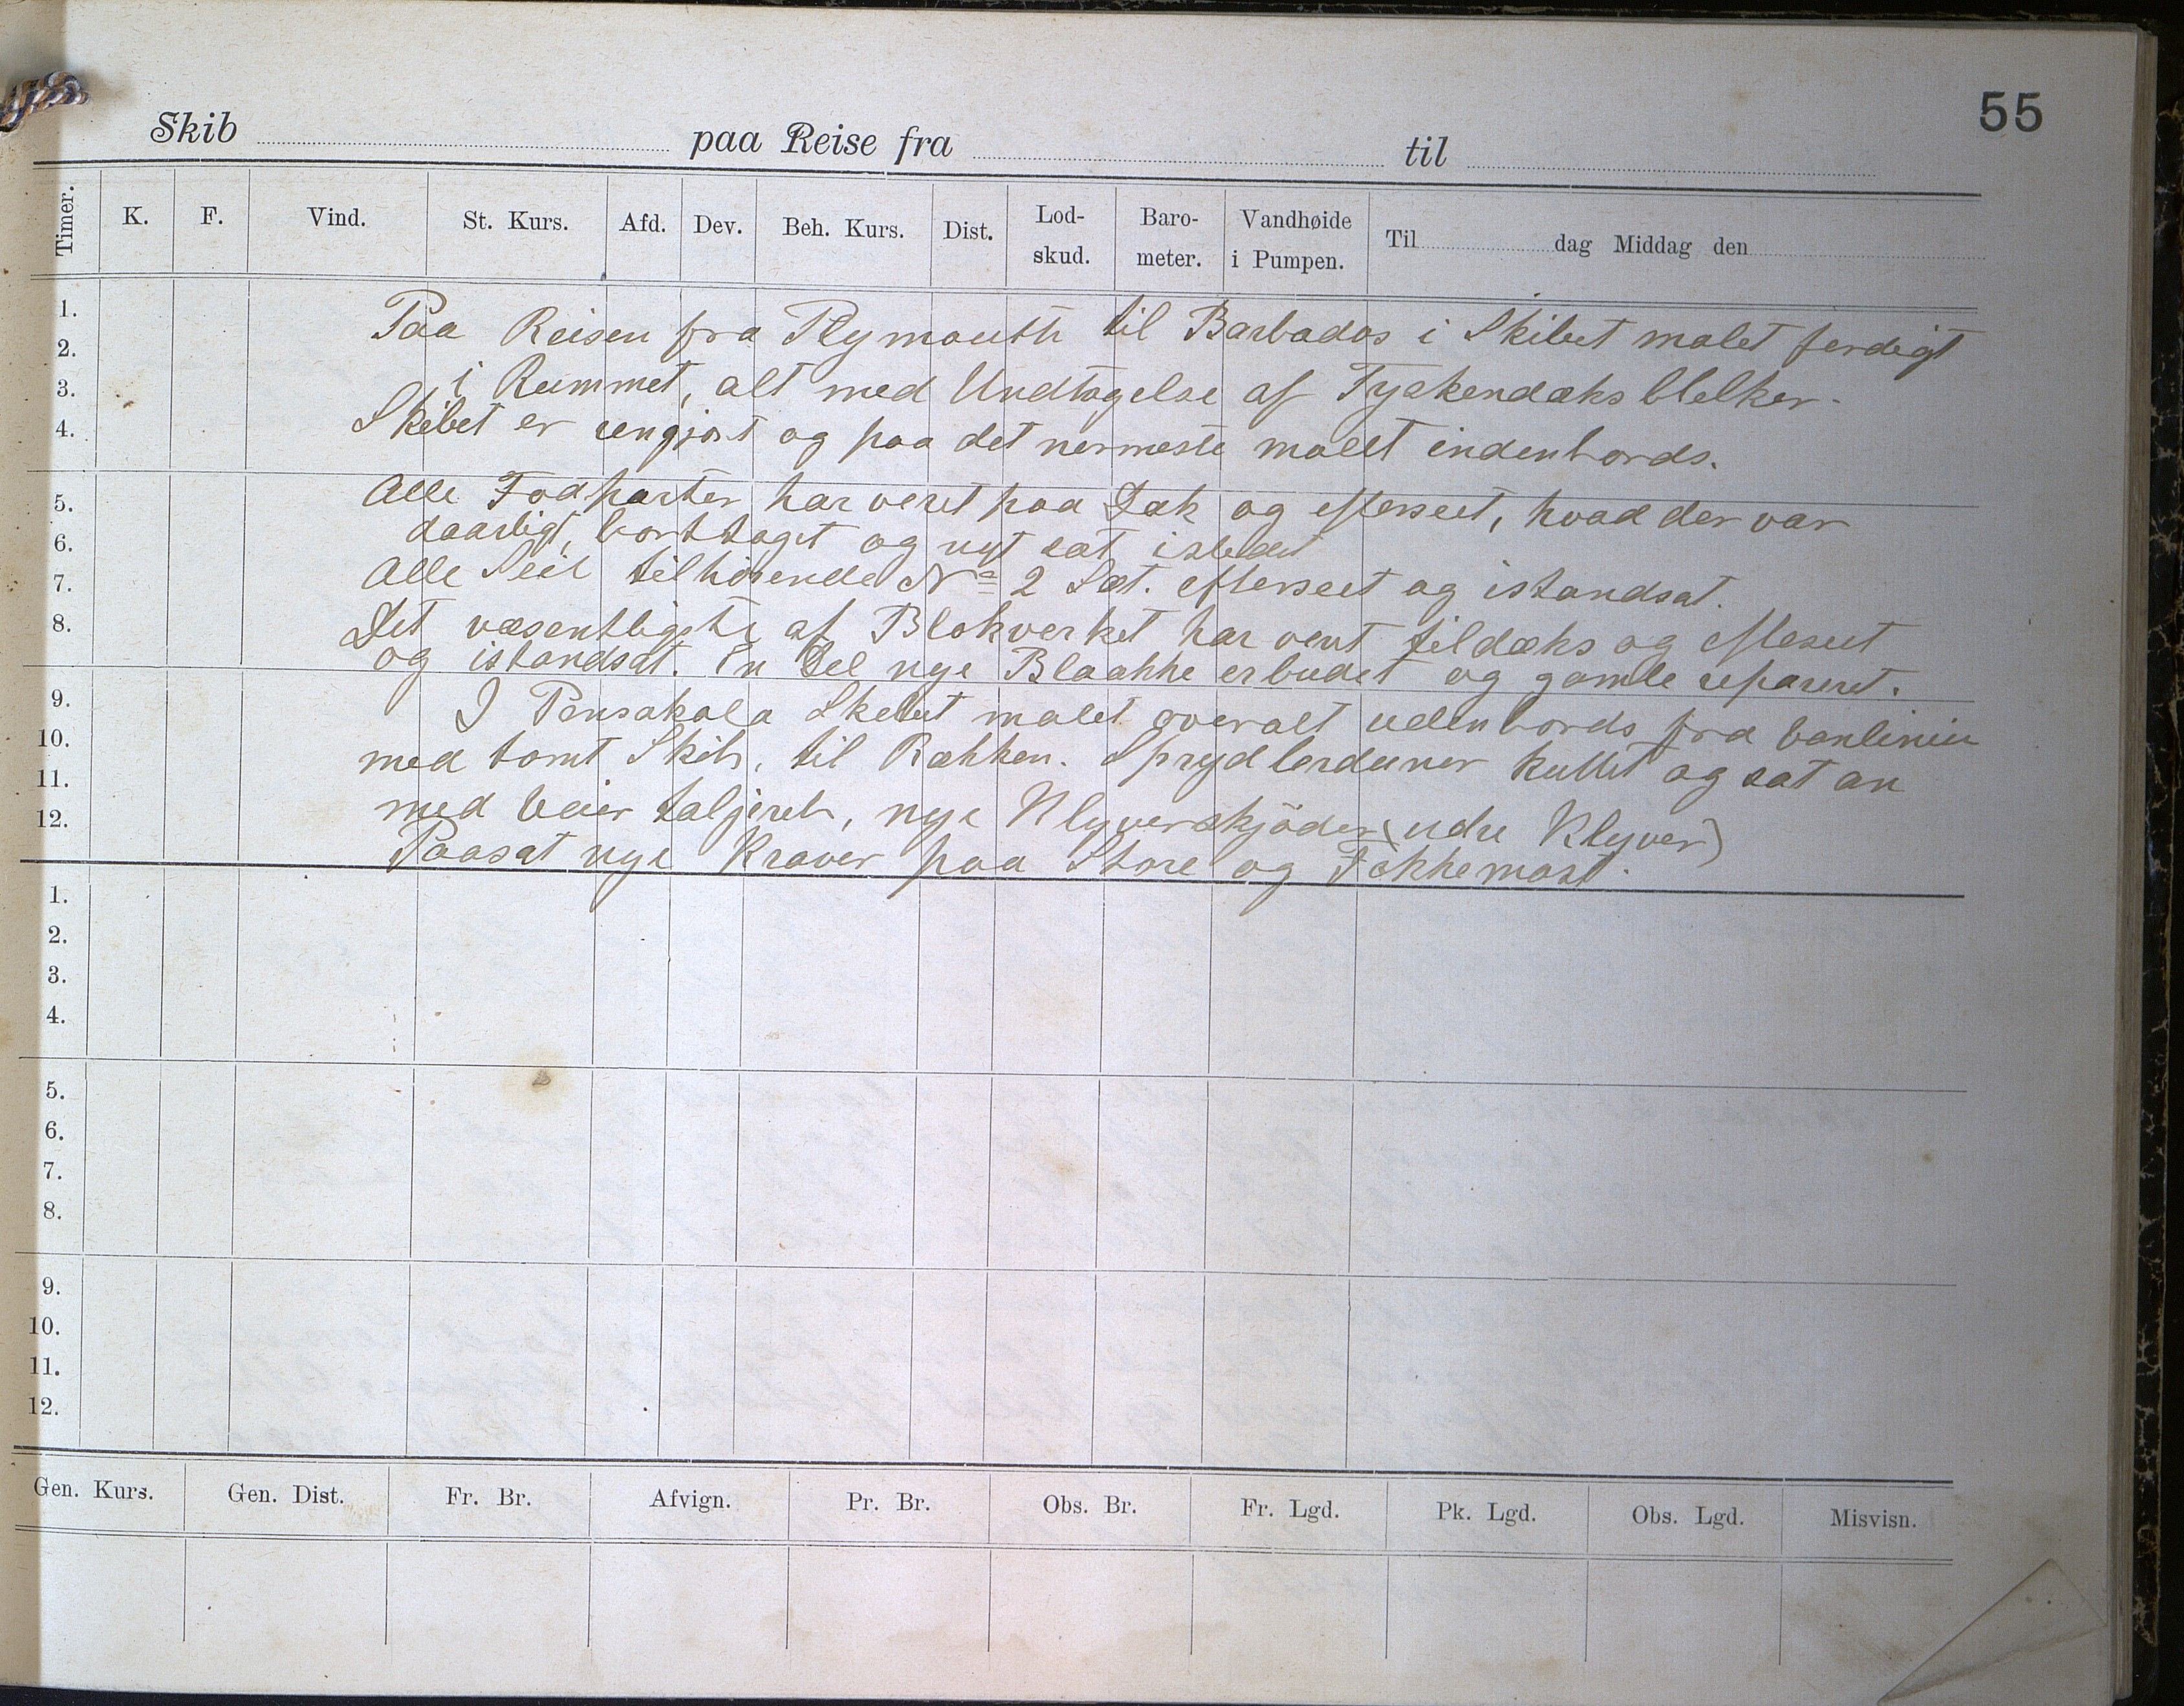 55
Skib paa Reise fra til
Timer. K. F. Vind. St. Kurs. Afd. Dev. Beh. Kurs. Dist. Lod-skud. Baro-meter. Vandhøide i Pumpen. Til dag Middag den
1.
2.
3.
4.
5.
6.
7.
8.
9.
10.
11.
12.
Paa Reisen fra Plymouth til Barbados i Skibet malet ferdigt
i Rummet, alt med Undtagelse af
Skibet er rengjort og paa det nermeste malet indenbords.
Alle Fodparter har veret paa Dæk og efterseet, hvad der var
daarligt, borttaget og nyt sat istedet
Alle Seil tilhørende No 2 Sæt. efterseet og istandsat.
Det væsentligste af Blokverket har veret tildæks og efterseet
og istandsat. En Del nye Blaakke er budet og gamle reparert.
I Pensakola Skibet malet overalt udenbords fra vanlinien
med tomt Skib, til Rækken. Spryd barduner kuttet og sat an
med veier taljereb, nye Klyverskjöder (udre Klyver)
Paasat nye Kraver paa Store og Fokkemast.
1.
2.
3.
4.
5.
6.
7.
8.
9.
10.
11.
12.
Gen. Kurs. Gen. Dist. Fr. Br. Afvign. Pr. Br. Obs. Br. Fr. Lgd. Pk. Lgd. Obs. Lgd. Misvisn.